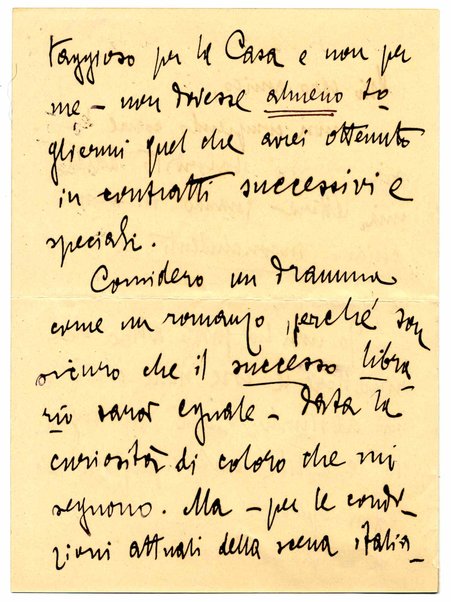 taggioso per la Casa e non per
me – non dovesse almeno to
gliermi quel che avrei ottenuto
in contratti successivi e
speciali.
Considero un dramma
come un romanzo, perché son
sicuro che il successo libra
rio sarà eguale – data la
curiosità di coloro che mi
seguono. Ma – per le condi-
zioni attuali della scena italia-